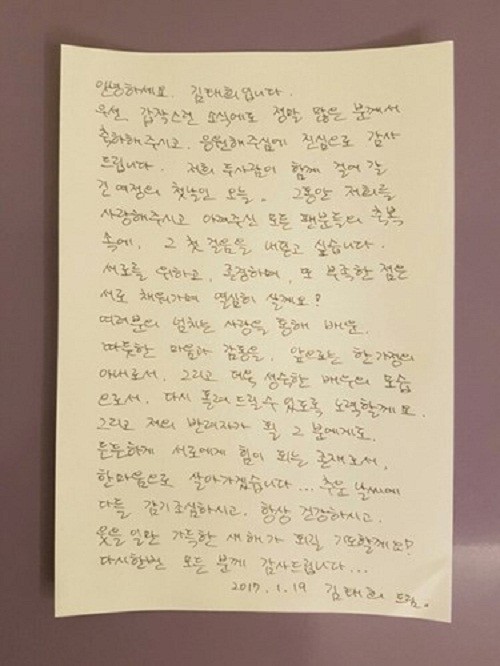 안녕하세요. 김태희입니다.
우선 갑작스런 소식에도 정말 많은 분께서
축하해주시고, 응원해주심에 진심으로 감사
드립니다. 저희 두사람이 함께 걸어 갈
긴 여정의 첫날인 오늘, 그동안 저희를
사랑해주시고 아껴주신 모든 팬분들의 축복
속에, 그 첫 걸음을 내딛고 싶습니다.
서로를 위하고, 존경하며, 또 부족한 점은
서로 채워가며 열심히 살게요!
여러분의 넘치는 사랑을 통해 배운,
따뜻한 마음과 감동을, 앞으로는 한 가정의
아내로서, 그리고 더욱 성숙한 배우의 모습
으로서, 다시 돌려 드릴 수 있도록 노력할게요.
그리고 저의 반려자가 될 그 분에게도,
든든하게 서로에게 힘이 되는 존재로서,
한마음으로 살아가겠습니다... 추운 날씨에
다들 감기조심하시고, 항상 건강하시고,
웃을 일만 가득한 새해가 되길 기도할게요!
다시한번 모든 분께 감사드립니다...
2017. 1. 19 김태희 드림.